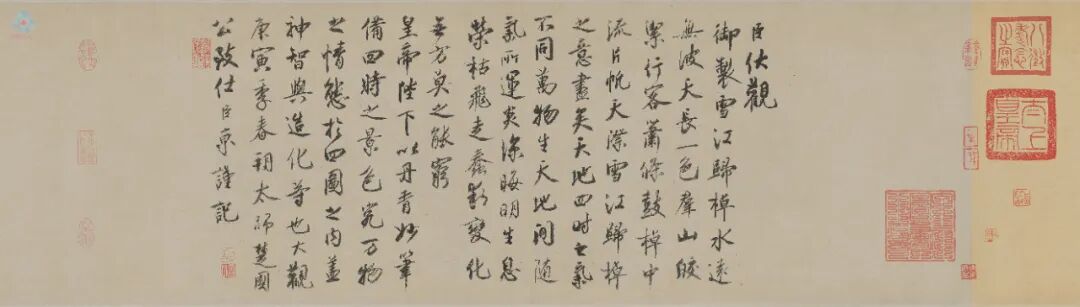 臣伏觀
御製雪江歸棹水遠
無波天長一色羣山皎
潔行客蕭條鼓棹中
流片帆天際雪江歸棹
之意盡矣天地四時之氣
不同萬物生天地間隨
氣所運炎涼晦明生息
榮枯飛走蠢動變化
無方莫之能窮
皇帝陛下以丹青妙筆
備四時之景色究万物
之情態於四圖之內蓋
神智與造化等也大觀
庚寅季春朔太師楚國
公致仕臣京謹記
八徵耄念之寶
太上皇帝